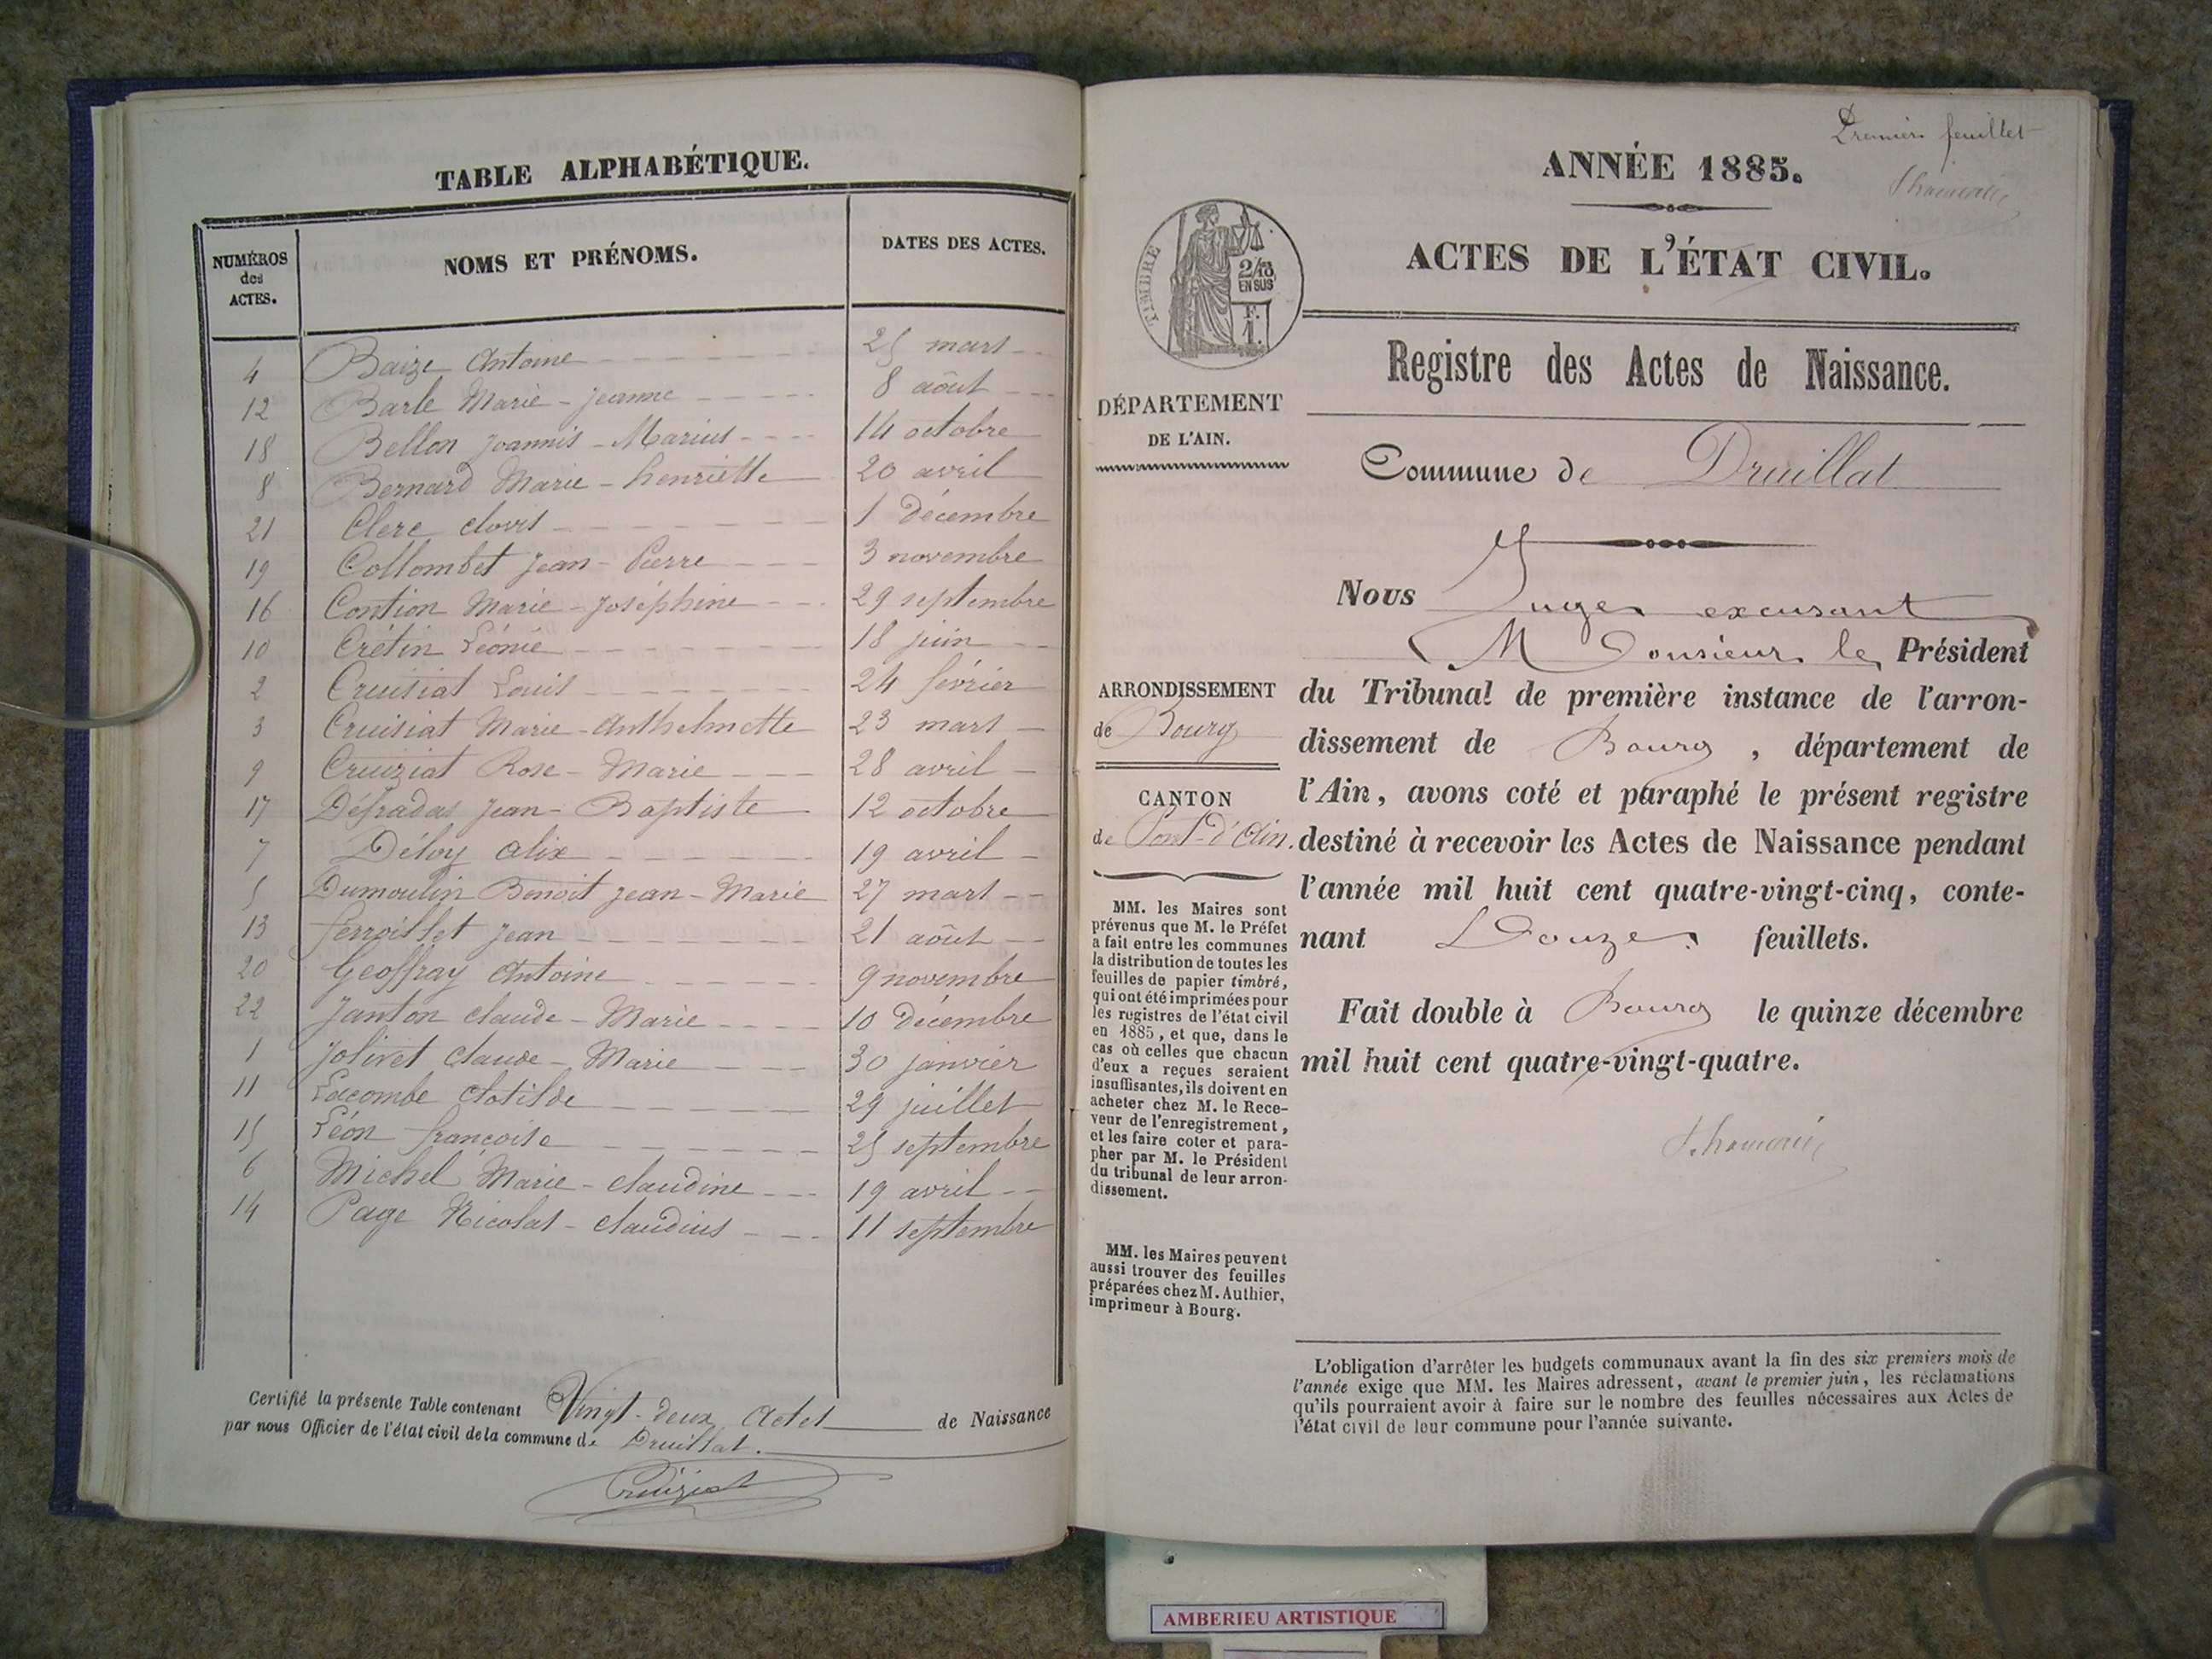 TABLE ALPHABÉTIQUE.
NUMÉROS des ACTES. NOMS ET PRÉNOMS. DATES DES ACTES.
4 Baize Antoine 25 mars
12 Barle Marie-Jeanne 8 août
18 Bellon Joannis-Marius 14 octobre
8 Bernard Marie-henriette 20 avril
21 Clerc Clovis 1 Décembre
19 Collombet Jean-Pierre 3 novembre
16 Contion Marie-Joséphine 29 septembre
10 Crétin Léonie 18 juin
2 Cruisiat Louis 24 février
3 Cruisiat Marie-Anthelmette 23 mars
9 Cruiziat Rose-Marie 28 avril
17 Défradas Jean-Baptiste 12 octobre
7 Déloy Alix 19 avril
5 Dumoulin Benoit Jean-Marie 27 mars
13 ferroillet Jean 21 août
20 Geoffray Antoine 9 novembre
22 Janton Claude-Marie 10 Décembre
1 Jolivet Claude-Marie 30 janvier
11 Lacombe Clotilde 29 juillet
15 Léon françoise 25 septembre
6 Michel Marie-Claudine 19 avril
14 Page Nicolas-Claudius 11 septembre
Certifié la présente Table contenant Vingt-Deux Actes de Naissance
par nous Officier de l'état civil de la commune de Druillat.
Cruiziat
Premier feuillet
ANNÉE 1885.
ACTES DE L'ÉTAT CIVIL.
TIMBRE
2/10 EN SUS
F. 1.
Registre des Actes de Naissance.
DÉPARTEMENT
DE L'AIN.
Commune de Druillat
Nous Juge excusant
Monsieur le Président
ARRONDISSEMENT
de Bourg
CANTON
de Pont-d'Ain.
du Tribunal de première instance de l'arron-
dissement de Bourg, département de
l'Ain, avons coté et paraphé le présent registre
destiné à recevoir les Actes de Naissance pendant
l'année mil huit cent quatre-vingt-cinq, conte-
nant Douze feuillets.
Fait double à Bourg le quinze décembre
mil huit cent quatre-vingt-quatre.
MM. les Maires sont
prévenus que M. le Préfet
a fait entre les communes
la distribution de toutes les
feuilles de papier timbré,
qui ont été imprimées pour
les registres de l'état civil
en 1885, et que, dans le
cas où celles que chacun
d'eux a reçues seraient
insuffisantes, ils doivent en
acheter chez M. le Rece-
veur de l'enregistrement,
et les faire coter et para-
pher par M. le Président
du tribunal de leur arron-
dissement.
MM. les Maires peuvent
aussi trouver des feuilles
préparées chez M. Authier,
imprimeur à Bourg.
L'obligation d'arrêter les budgets communaux avant la fin des six premiers mois de
l'année exige que MM. les Maires adressent, avant le premier juin, les réclamations
qu'ils pourraient avoir à faire sur le nombre des feuilles nécessaires aux Actes de
l'état civil de leur commune pour l'année suivante.
AMBERIEU ARTISTIQUE